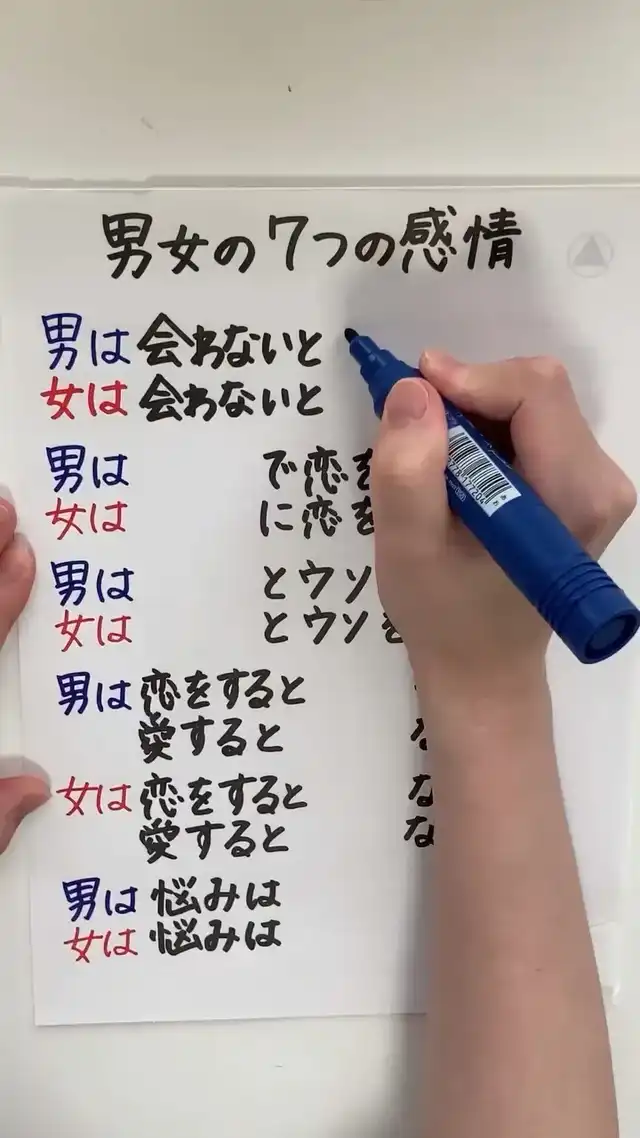 男女の7つの感情
男は会わないと
女は会わないと
男は で恋を
女は に恋を
男は とウソ
女は とウソを
男は恋をすると
愛すると な
女は恋をすると な
愛すると な
男は悩みは
女は悩みは